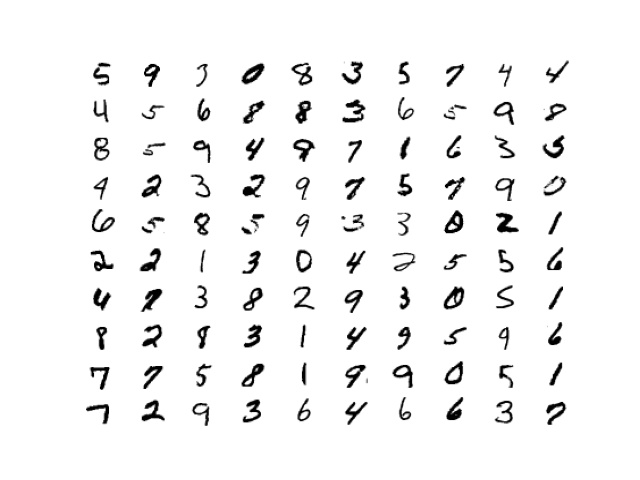 5 9 3 0 8 3 5 7 4 4
4 5 6 8 8 3 6 5 9 8
8 5 9 4 9 7 1 6 3 5
4 2 3 2 9 7 5 7 9 0
6 5 8 5 9 3 3 0 2 1
2 2 1 3 0 4 2 5 5 6
4 7 3 8 2 9 3 0 5 1
8 2 8 3 1 4 9 5 9 6
7 7 5 8 1 9 9 0 5 1
7 2 9 3 6 4 6 6 3 7